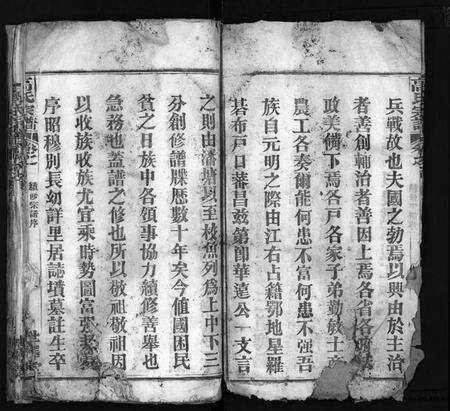 兵戰故也夫國之勃焉以興由於主治
者善創輔治者善因上焉各省各
政美備下焉各戶各家子弟勤敏士商
農工各奏爾能何患不富何患不强吾
族自元明之際由江右占籍鄂地星羅
碁布戶口蕃昌兹第節華遠公一支言
高氏宗譜
卷之
續修宗譜序
之則由潘塘以至枝魚列爲上中下三
分創修譜牒歷數十年矣今值國困民
貧之日族中各領事協力續修善舉也
急務也蓋譜之修也所以敬祖敬祖因
以收族收族尤宜乘時勢圖富强
序昭穆別長幼詳里居誌墳墓註生卒